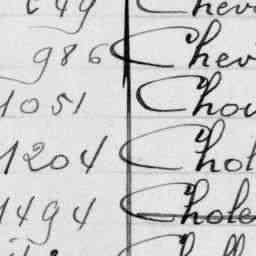 986 Chev
1051 Chou
1204 Chol
1494 Chole